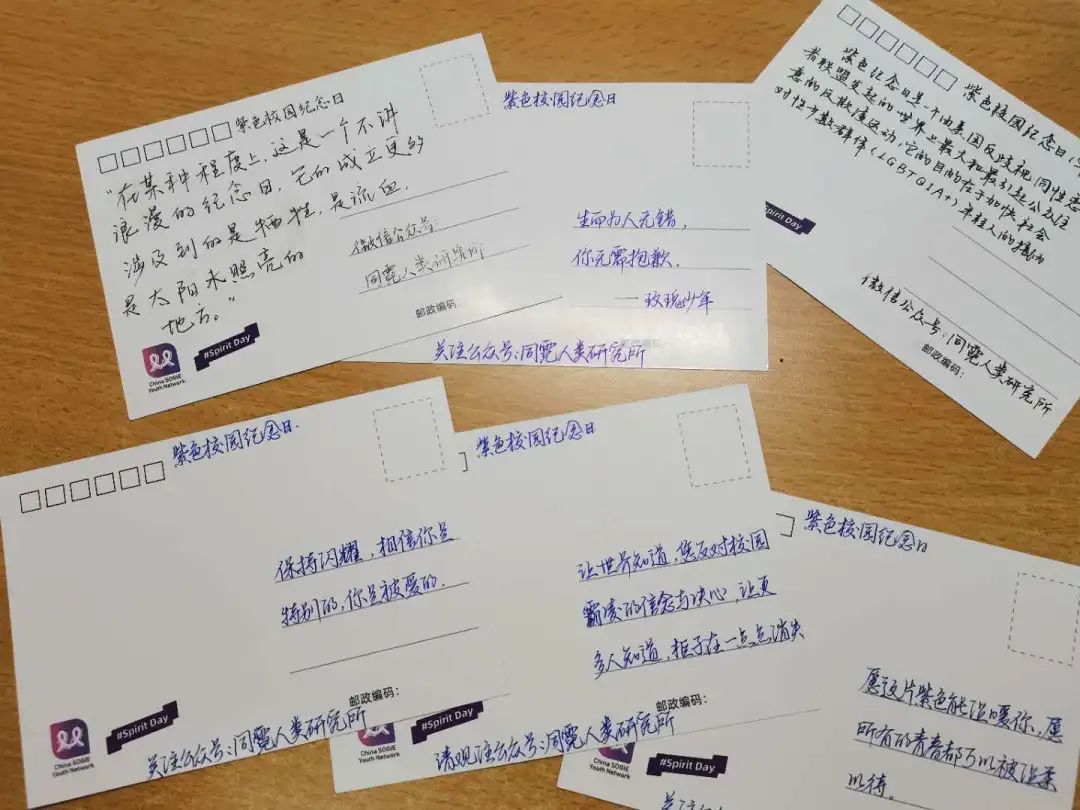 紫色校园纪念日
"在某种程度上,这是一个不讲
浪漫的纪念日,它的成立更多
涉及到的是牺牲,是流血,
是太阳未照亮的
地方。"
微信公众号:
同霓人类研究所
邮政编码
China SOGIE
Youth Network
#Spirit Day
紫色校园纪念日
生而为人无错,
你无需抱歉.
——玫瑰少年
关注公众号:同霓人类研究所
紫色校园纪念日,
紫色纪念日是一个由美国反歧视同性恋
者联盟发起的世界上最大和最引起公众注
意的反欺凌运动,它的目的在于加快社会
对性少数群体(LGBTQIA+)年轻人的接纳
微信公众号:同霓人类研究所
邮政编码:
Spirit Day
紫色校园纪念日.
保持闪耀,相信你是
特别的,你是被爱的.
邮政编码:
China SOGIE
Youth Network
#Spirit Day
关注公众号:同霓人类研究所
紫色校园纪念日
让世界知道,您反对校园
霸凌的信念与决心,让更
多人知道,柜子在一点点消失
China SOGIE
Youth Network
#Spirit Day
请观注公众号:同霓人类研究所
紫色校园纪念日
愿这片紫色能温暖你,愿
所有的青春都可以被温柔
以待。
China SOGIE
Youth Network
#Spirit Day